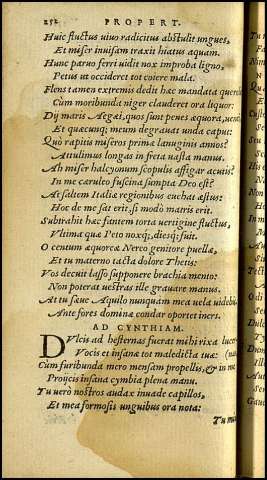 252 PROPERT.
Huic fluctus uiuo radicitus abstulit ungues,
Et miser inuisam traxit hiatus aquam.
Hunc paruo ferri uidit nox improba ligno,
Petus ut occideret tot coiere mala.
Flens tamen extremis dedit hæc mandata querelis
Cum moribunda niger clauderet ora liquor:
Dij maris Aegæi, quos sunt penes æquora, uenti,
Et quæcunq; meum degrauat unda caput:
Quò rapitis miseros primæ lanuginis annos?
Attulimus longas in freta uasta manus.
Ah miser halcyonum scopulis affigar acutis?
In me cæruleo fuscina sumpta Deo est?
At saltem Italiæ regionibus euehat æstus:
Hoc de me sat erit, si modò matris erit.
Subtrahit hæc fantem torta uertigine fluctus,
Vltima quæ Peto noxq;, diesq; fuit.
O centum æquoreæ Nereo genitore puellæ,
Et tu materno tacta dolore Thetis:
Vos decuit lasso supponere brachia mento:
Non poterat uestras ille grauare manus.
At tu sæue Aquilo nunquam mea uela uidebis,
Ante fores dominæ condar oportet iners.
AD CYNTHIAM.
DVlcis ad hesternas fuerat mihi rixa lucernas
Vocis et insanæ tot maledicta tuæ:
Cum furibunda mero mensam propellis, & in me
Proijcis insana cymbia plena manu.
Tu uerò nostros audax inuade capillos,
Et mea formosis unguibus ora nota: